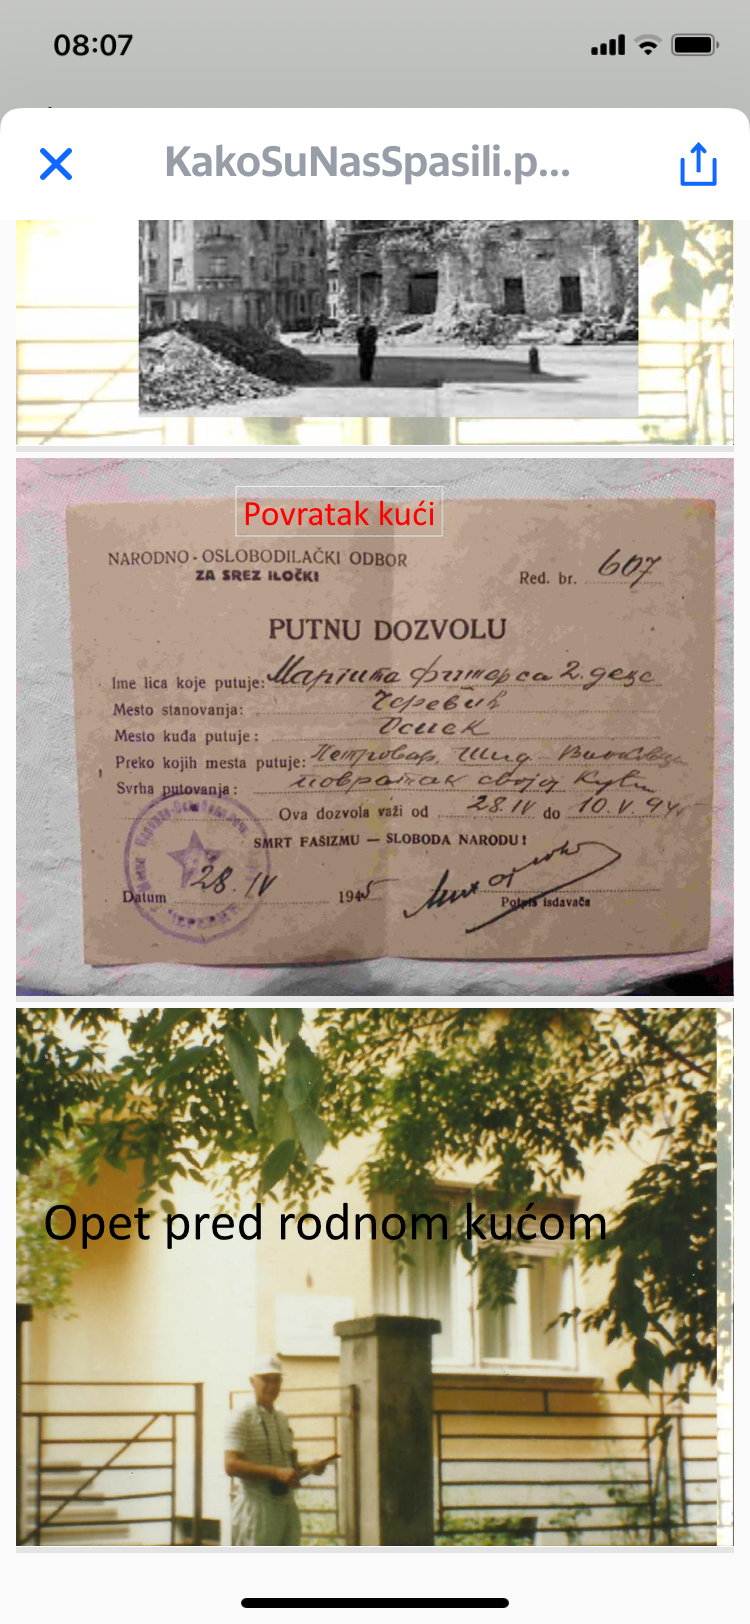 08:07
KakoSuNasSpasili.p...
Povratak kući
NARODNO-OSLOBODILAČKI ODBOR
ZA SREZ ILOČKI
Red. br. 607
PUTNU DOZVOLU
Ime lica koje putuje: Маргита фишерса 2. деце
Mesto stanovanja: Черевић
Mesto kuda putuje: Осиек
Preko kojih mesta putuje: Петровар, Шид - Винковци
Svrha putovanja: повратак својој кући
Ova dozvola važi od 28. IV do 10. V. 945
SMRT FAŠIZMU — SLOBODA NARODU!
Datum 28. IV 1945
Potpis isdavača
Opet pred rodnom kućom